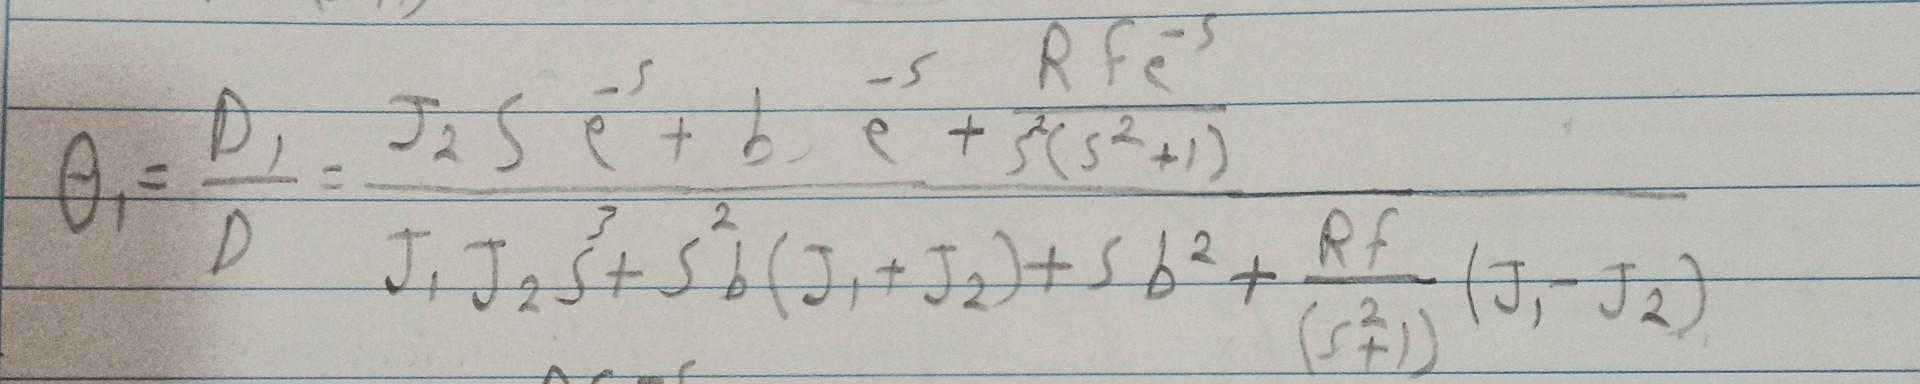 θ₁ = D₁/D = (J₂ S e^-s + b e^-s + R f e^-s/(s²(s²+1))) / (J₁ J₂ s³ + s² b (J₁ + J₂) + s b² + Rf/(s²+1) (J₁ - J₂))